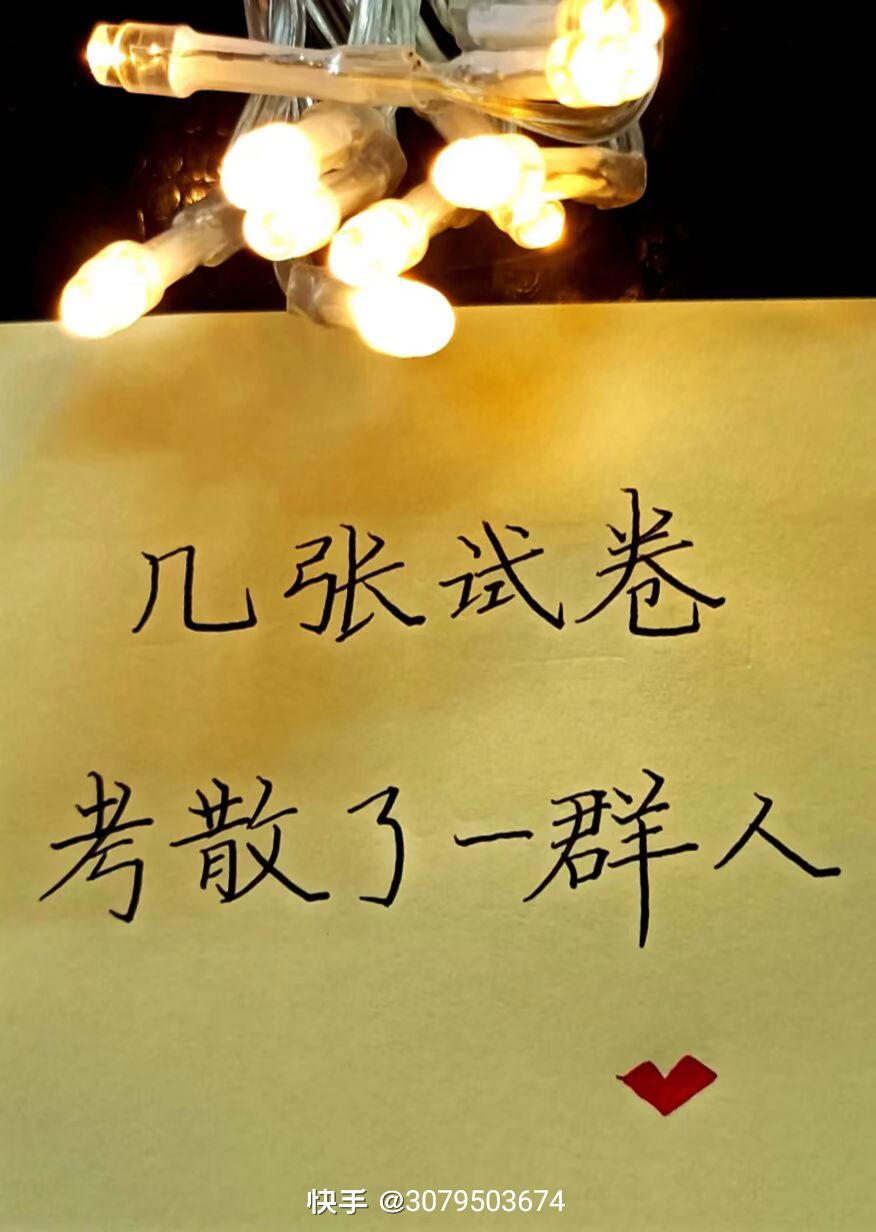 几张试卷
考散了一群人
快手 @3079503674